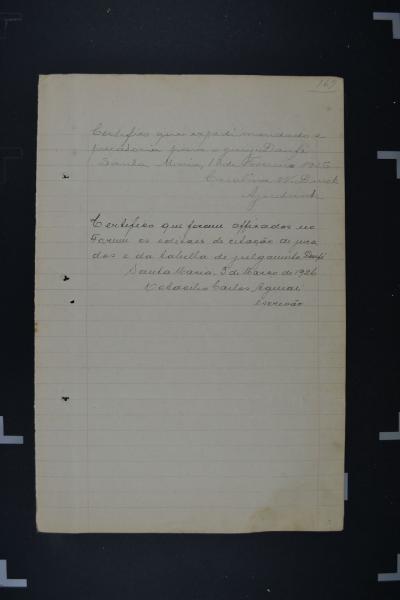 169
Certifico que expedi mandado e
precatoria para o jury. Doufé
Santa Maria, 1 de Fevereiro 1926
Carolina
Ajudante
Certifico que foram affixados no
Forum os editaes de citação de jura
dos e da tabella de julgamento. Doufé
Santa Maria, 3 de Março de 1926
Carlos Aguiar
escrivão